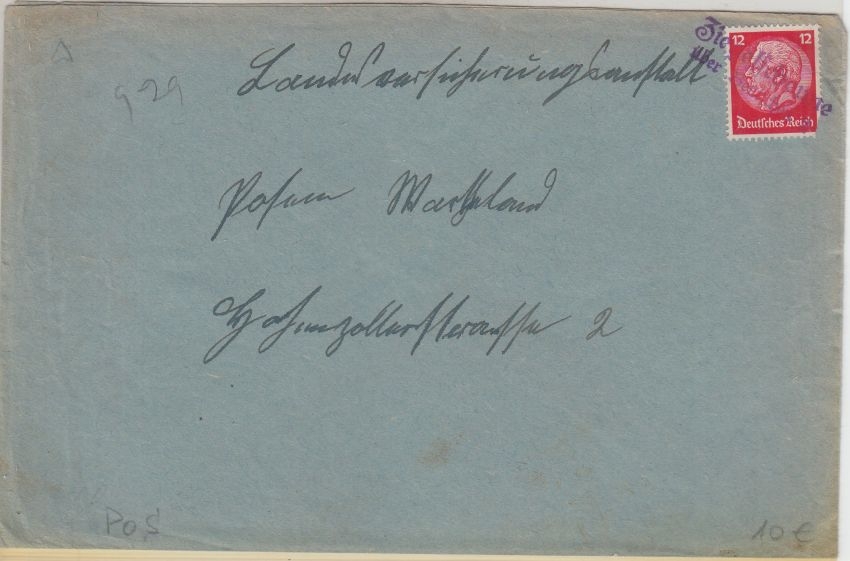 12 12
Deutsches Reich
über
Landesversicherungsanstalt
929
Posen Wartheland
Hohenzollernstrasse 2
Pos
10 €